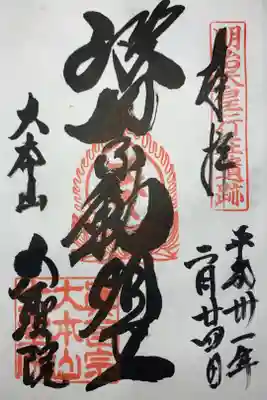 明治天皇行在遺跡
奉拝
平成卅一年
二月廿四日
波切不動明王
大本山
大聖院
大本山